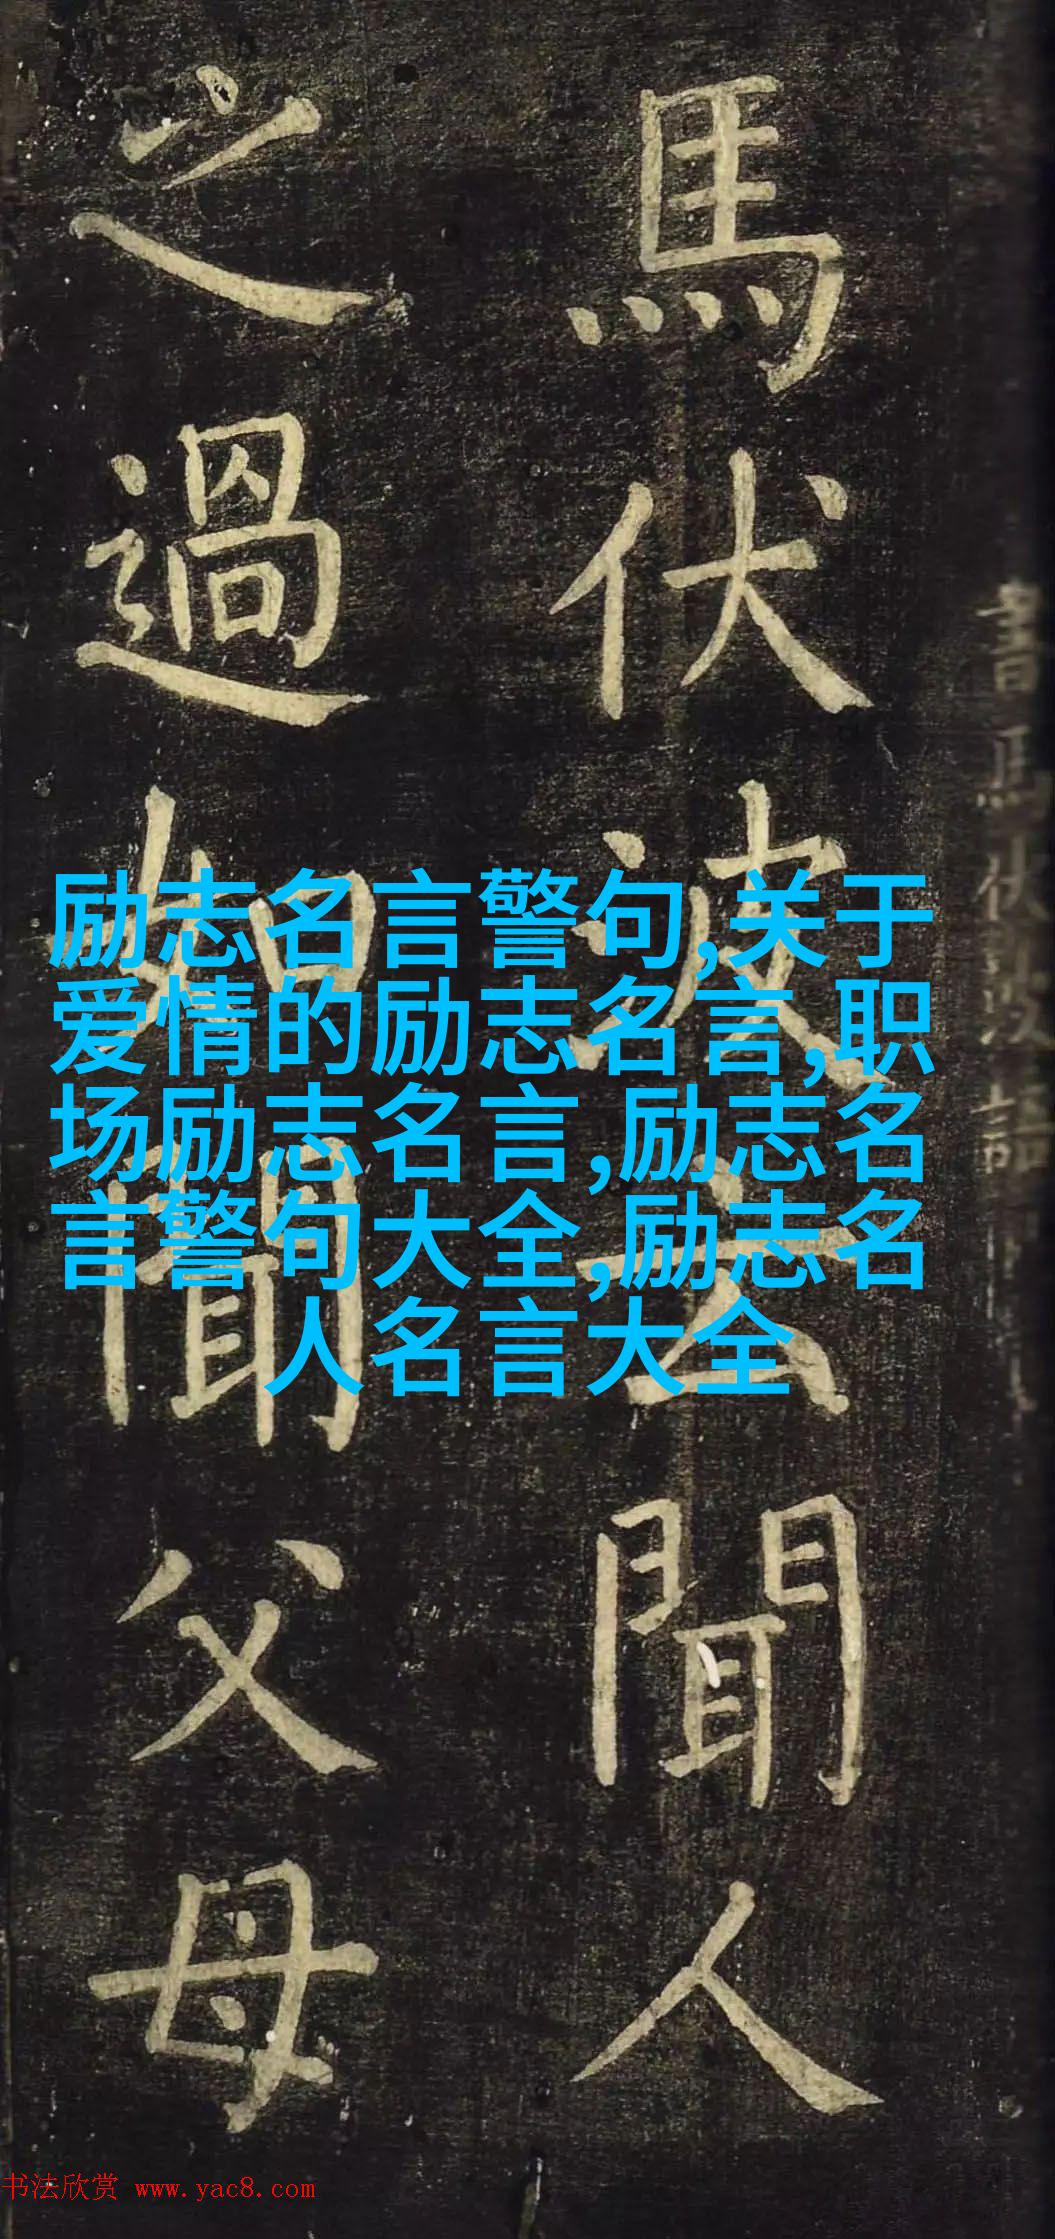 書馬伏波語
馬伏波云聞人
之過如聞父母
励志名言警句,关于
爱情的励志名言,职
场励志名言,励志名
言警句大全,励志名
人名言大全
书法欣赏 www.yac8.com